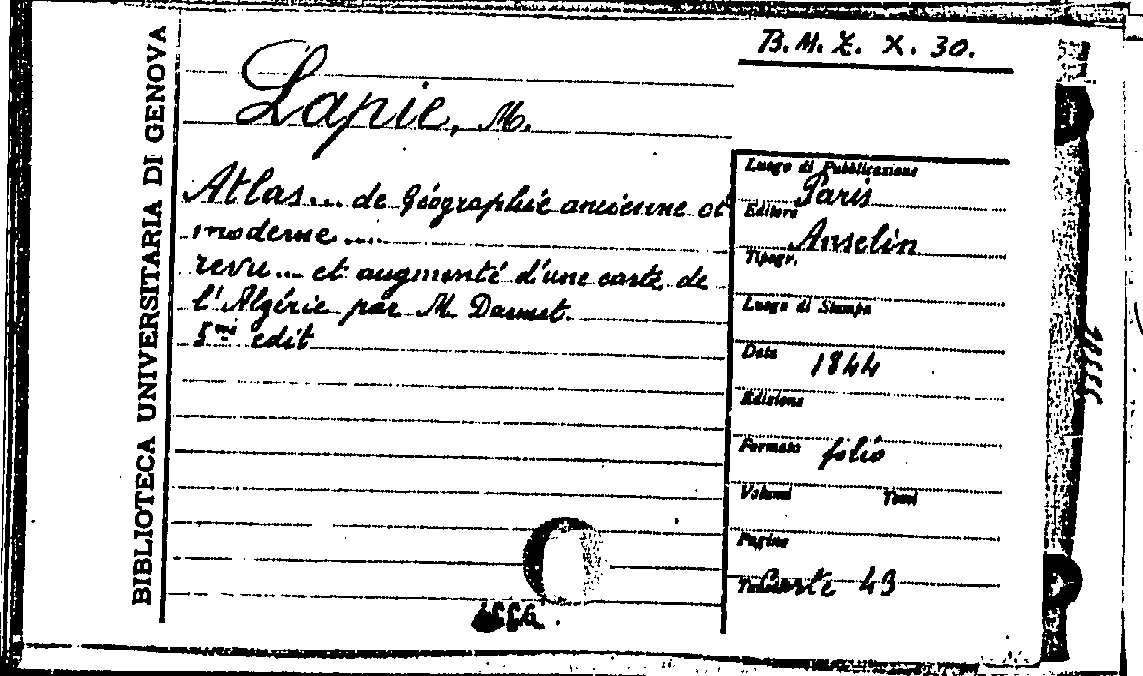 BIBLIOTECA UNIVERSITARIA DI GENOVA
B. M. Z. X. 30.
Lapie, M.
Atlas... de Géographie ancienne et
moderne ....
revu ... et augmenté d'une carte de
l'Algérie par M. Darmet.
5me edit
Luogo di Pubblicazione
Paris
Editore
Anselin
Tipogr.
Luogo di Stampa
Data 1844
Edizione
Formato folio
Volumi Tomi
Pagine
Carte 49